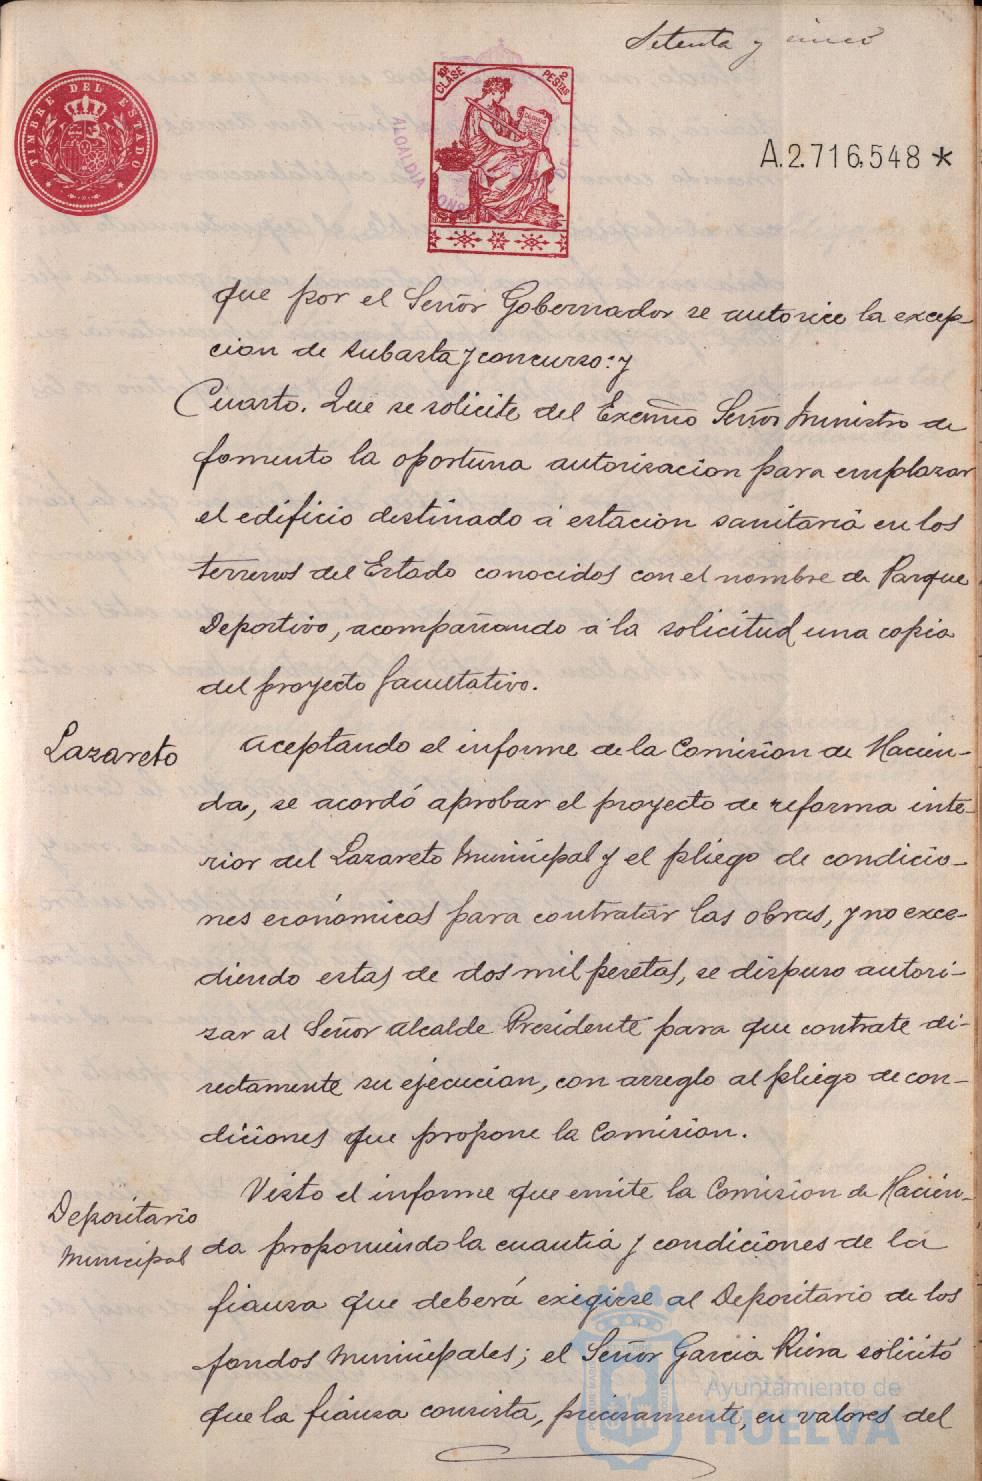 Setenta y cinco
TIMBRE DEL ESTADO
10ª CLASE
2 PESETAS
ALCALDIA CONS
A.2.716.548 *
que por el Señor Gobernador se autorice la excep
cion de subasta y concurso: y
Cuarto. Que se solicite del Excmo Señor Ministro de
fomento la oportuna autorizacion para emplazar
el edificio destinado á estacion sanitaria en los
terrenos del Estado conocidos con el nombre de Parque
Deportivo, acompañando á la solicitud una copia
del proyecto facultativo.
Lazareto
Aceptando el informe de la Comision de Hacien-
da, se acordó aprobar el proyecto de reforma inte-
rior del Lazareto Municipal y el pliego de condicio-
nes económicas para contratar las obras, y no exce-
diendo estas de dos mil pesetas, se dispuso autori-
zar al Señor Alcalde Presidente para que contrate di-
rectamente su ejecucion, con arreglo al pliego de con-
diciones que propone la Comision.
Depositario
Municipal
Visto el informe que emite la Comision de Hacien-
da proponiendo la cuantia y condiciones de la
fianza que deberá exigirse al Depositario de los
fondos Municipales; el Señor Garcia Riera solicitó
que la fianza consista, precisamente, en valores del
Ayuntamiento de
HUELVA